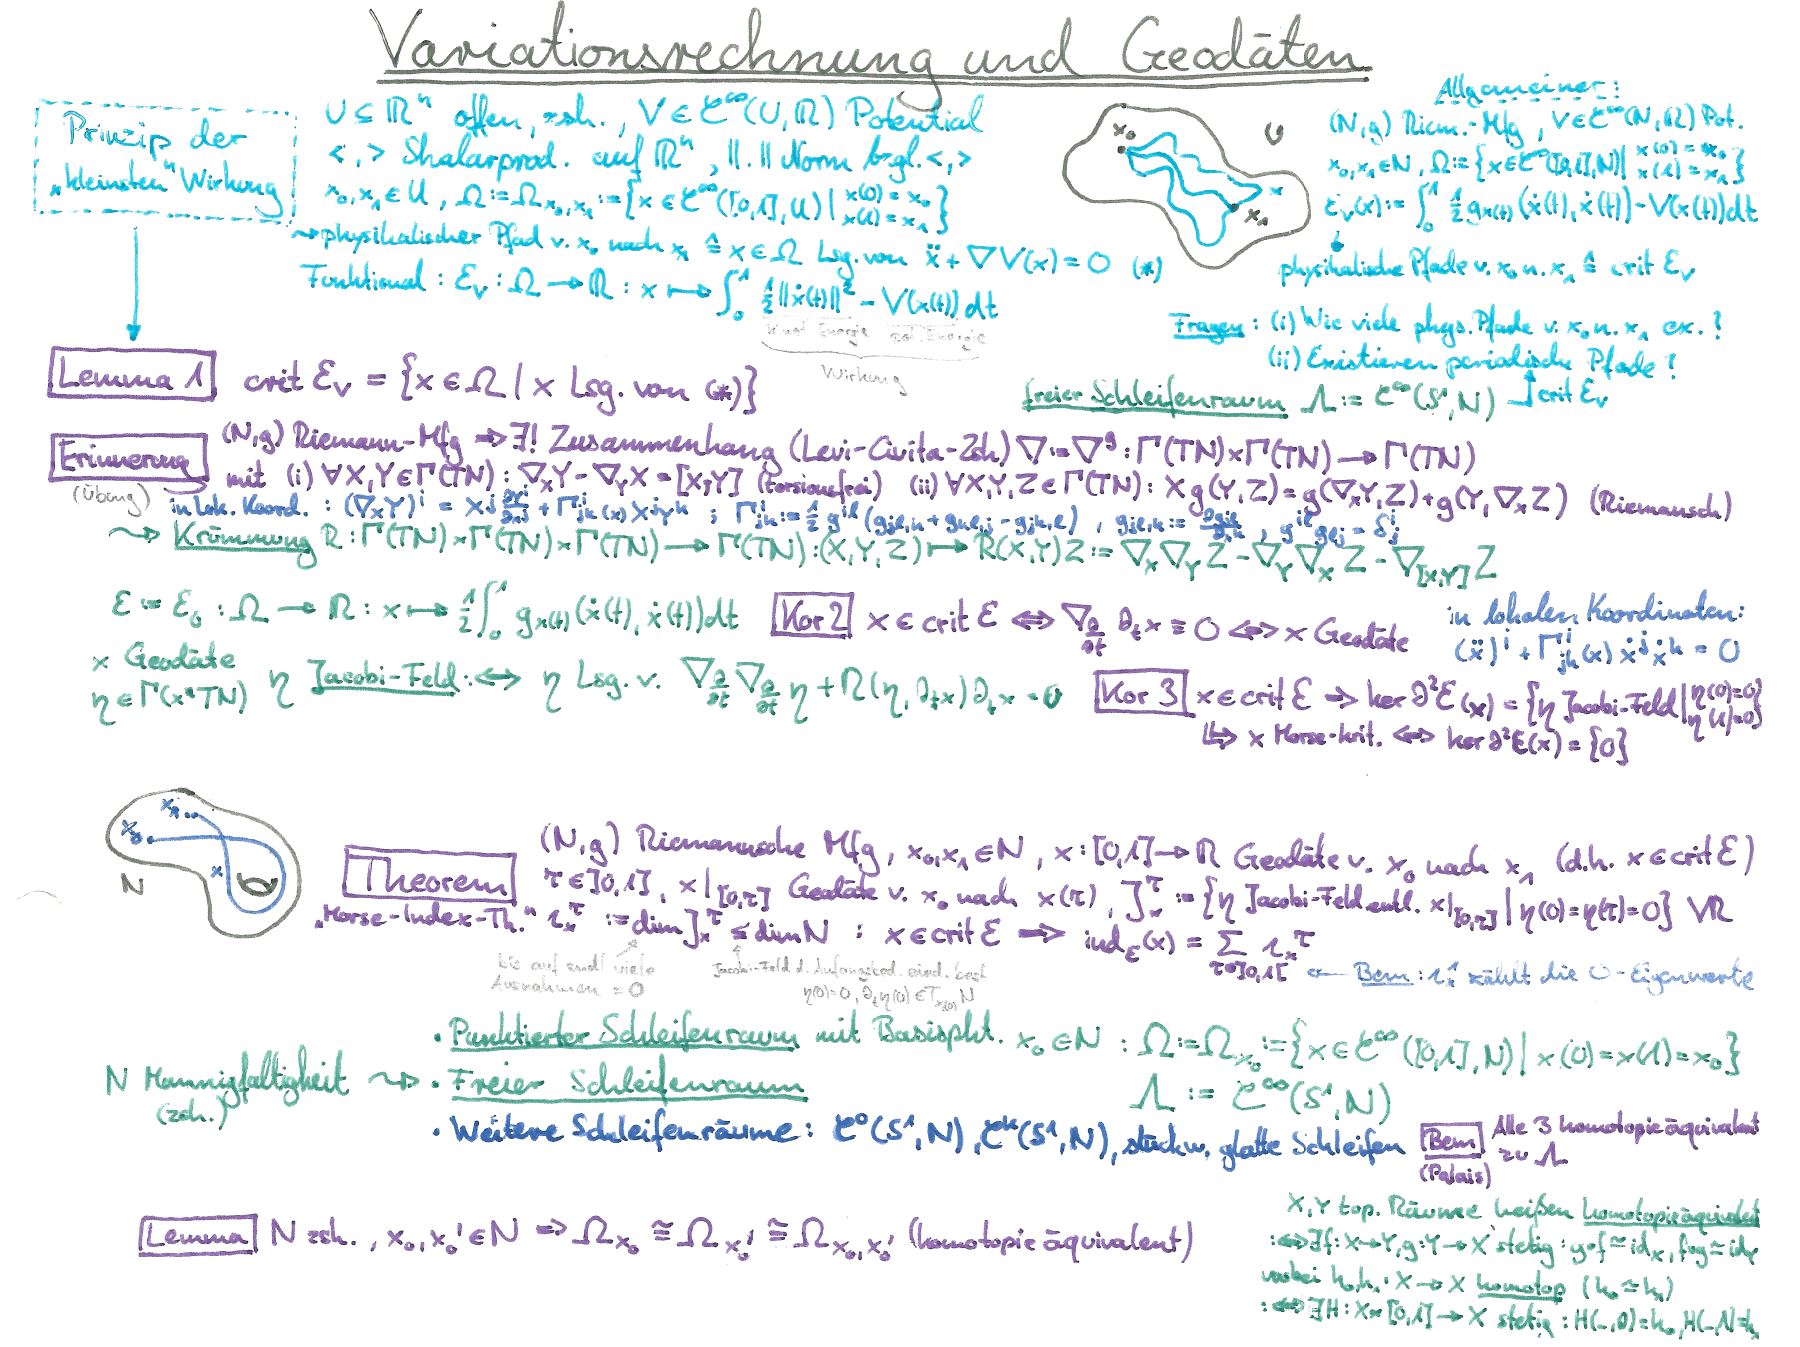 Variationsrechnung und Geodäten
Prinzip der
„kleinsten" Wirkung
U ⊆ ℝⁿ offen, zsh., V ∈ C^∞(U,ℝ) Potential
<,> Skalarprod. auf ℝⁿ, ||.|| Norm bzgl. <,>
x₀,x₁ ∈ U, Ω := Ω_{x₀,x₁} := {x ∈ C^∞([0,1],U) | x(0)=x₀ x(1)=x₁}
⇝ physikalischer Pfad v. x₀ nach x₁ ≙ x ∈ Ω Lsg. von ẍ + ∇V(x) = 0 (*)
Funktional : ℰ_V : Ω → ℝ : x ↦ ∫₀¹ ½||ẋ(t)||² - V(x(t)) dt
kinet Energie pot. Energie
Wirkung
x₀
U
x
x₁
Allgemeiner:
(N,g) Riem.-Mfg, V ∈ C^∞(N,ℝ) Pot.
x₀,x₁ ∈ N, Ω := {x ∈ C^∞([0,1],N) | x(0)=x₀ x(1)=x₁}
ℰ_V(x) := ∫₀¹ ½ g_{x(t)}(ẋ(t),ẋ(t)) - V(x(t)) dt
physikalische Pfade v. x₀ n. x₁ ≙ crit ℰ_V
Fragen : (i) Wie viele phys. Pfade v. x₀ n. x₁ ex. ?
(ii) Existieren periodische Pfade ?
freier Schleifenraum Λ := C^∞(S¹,N) crit ℰ_V
Lemma 1 crit ℰ_V = {x ∈ Ω | x Lsg. von (*)}
Erinnerung (N,g) Riemann-Mfg ⇒ ∃! Zusammenhang (Levi-Civita-Zsh) ∇ := ∇^g : Γ(TN)×Γ(TN) → Γ(TN)
(Übung) mit (i) ∀X,Y ∈ Γ(TN) : ∇_X Y - ∇_Y X = [X,Y] (torsionsfrei) (ii) ∀X,Y,Z ∈ Γ(TN) : X g(Y,Z) = g(∇_X Y,Z) + g(Y,∇_X Z) (Riemansch)
in lok. Koord. : (∇_X Y)^i = X^j ∂Y^i/∂x^j + Γ^i_{jk}(x) X^j Y^k ; Γ^i_{jk} := ½ g^{il}(g_{jl,k} + g_{kl,j} - g_{jk,l}) , g_{jl,k} := ∂g_{jl}/∂x^k , g^{il} g_{lj} = δ^i_j
⇝ Krümmung R : Γ(TN)×Γ(TN)×Γ(TN) → Γ(TN) : (X,Y,Z) ↦ R(X,Y)Z := ∇_X ∇_Y Z - ∇_Y ∇_X Z - ∇_{[X,Y]} Z
ℰ := ℰ₀ : Ω → ℝ : x ↦ ½ ∫₀¹ g_{x(t)}(ẋ(t),ẋ(t)) dt
Kor 2 x ∈ crit ℰ ⟺ ∇_{∂/∂t} ∂_t x ≡ 0 ⟺ x Geodäte
in lokalen Koordinaten:
(ẍ)^i + Γ^i_{jk}(x) ẋ^j ẋ^k = 0
x Geodäte
η ∈ Γ(x*TN) η Jacobi-Feld :⟺ η Lsg. v. ∇_{∂/∂t} ∇_{∂/∂t} η + R(η,∂_t x)∂_t x = 0
Kor 3 x ∈ crit ℰ ⇒ ker ∂²ℰ(x) = {η Jacobi-Feld | η(0)=0 η(1)=0}
↳ x Morse-krit. ⟺ ker ∂²ℰ(x) = {0}
x₁
x₀
x
N
Theorem (N,g) Riemannsche Mfg, x₀,x₁ ∈ N, x : [0,1] → ℝ Geodäte v. x₀ nach x₁ (d.h. x ∈ crit ℰ)
τ ∈ ]0,1], x|_{[0,τ]} Geodäte v. x₀ nach x(τ), J_x^τ := {η Jacobi-Feld entl. x|_{[0,τ]} | η(0)=η(τ)=0} VR
„Morse-Index-Th." ι_x^τ := dim J_x^τ ≤ dim N : x ∈ crit ℰ ⇒ ind_ℰ(x) = Σ_{τ∈]0,1[} ι_x^τ
bis auf endl viele
Ausnahmen = 0
Jacobi-Feld d. Anfangsbed. eind. best
η(0)=0, ∂_t η(0) ∈ T_{x(0)} N
← Bem : ι_x^1 zählt die 0-Eigenwerte
N Mannigfaltigkeit ⇝
(zsh.)
• Punktierter Schleifenraum mit Basispkt. x₀ ∈ N : Ω := Ω_{x₀} := {x ∈ C^∞([0,1],N) | x(0)=x(1)=x₀}
• Freier Schleifenraum Λ := C^∞(S¹,N)
• Weitere Schleifenräume : C⁰(S¹,N), C^k(S¹,N), stückw. glatte Schleifen
Bem Alle 3 homotopieäquivalent
(Palais) zu Λ
Lemma N zsh., x₀,x₀' ∈ N ⇒ Ω_{x₀} ≅ Ω_{x₀'} ≅ Ω_{x₀,x₀'} (homotopieäquivalent)
X,Y top. Räume heißen homotopieäquivalent
:⟺ ∃f:X→Y, g:Y→X stetig : g∘f ≃ id_X, f∘g ≃ id_Y
wobei h₀,h₁ : X → X homotop (h₀ ≃ h₁)
:⟺ ∃H : X×[0,1] → X stetig : H(_,0)=h₀, H(_,1)=h₁